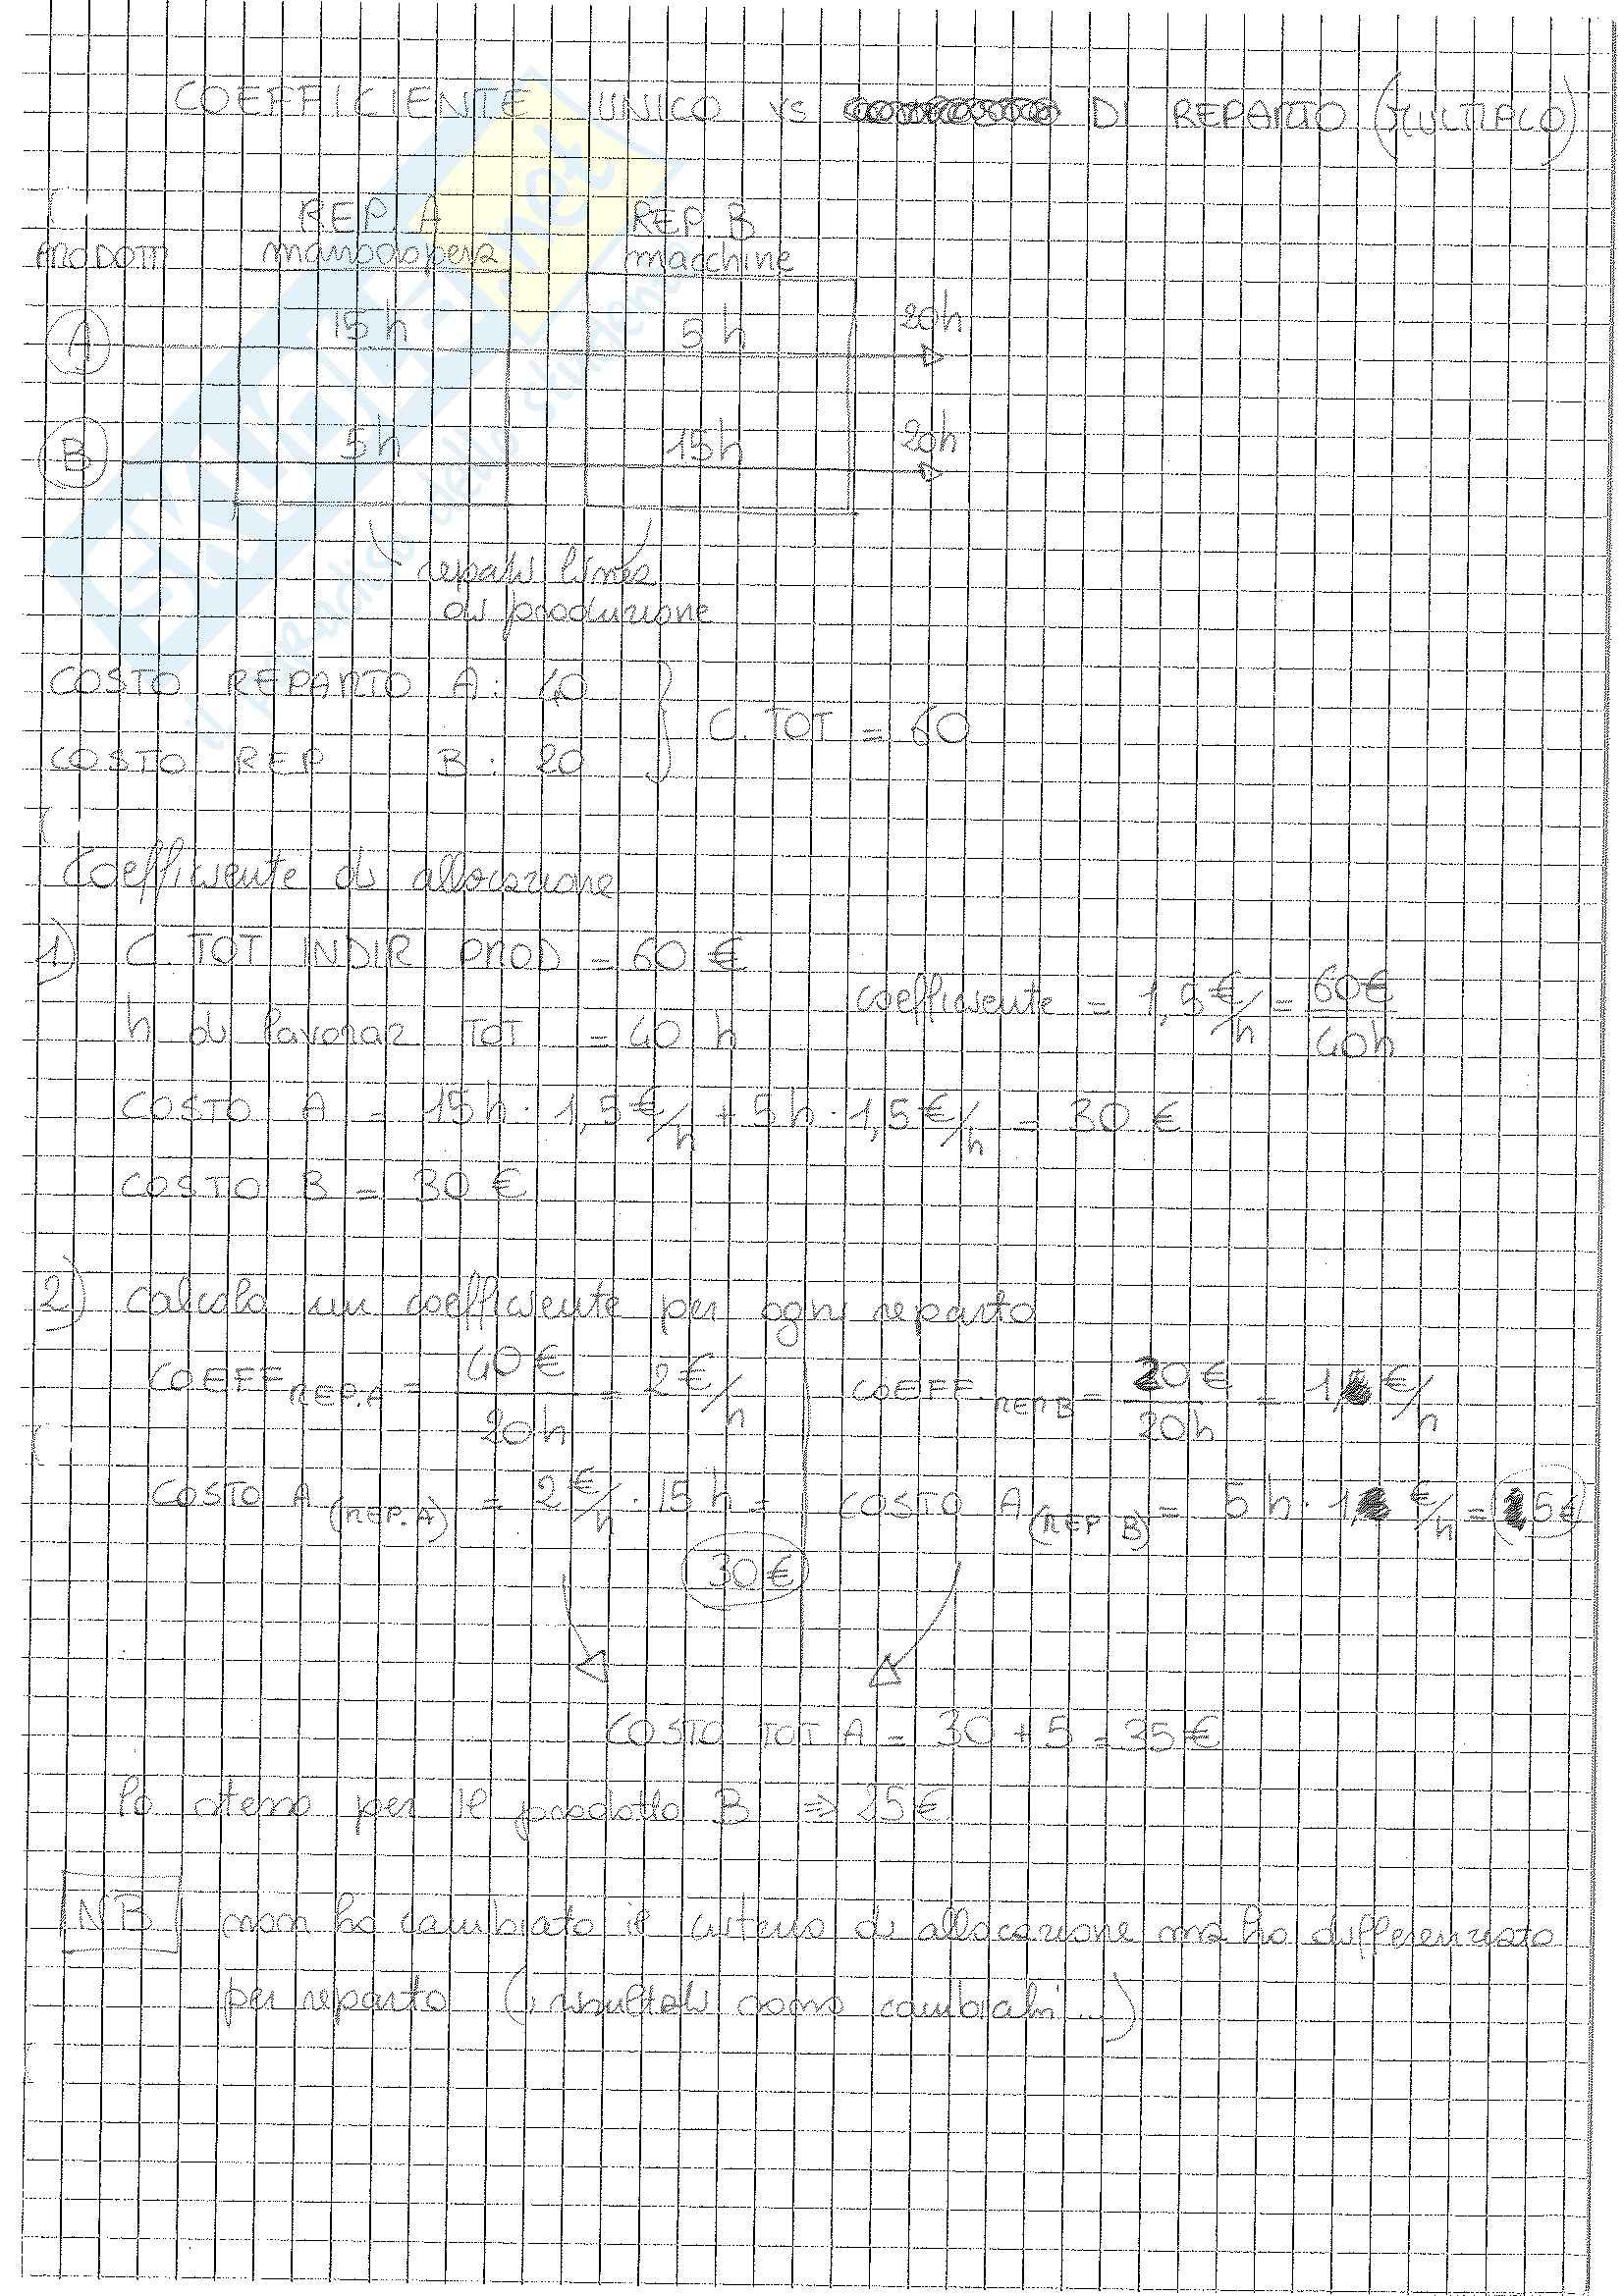 COEFFICIENTE UNICO VS DI REPARTO (MULTIPLO)
REP. A REP. B
PRODOTTI manodopera macchine
A 15 h 5 h 20h
B 5h 15h 20h
reparti linea
di produzione
COSTO REPARTO A: 40
C. TOT = 60
COSTO REP B: 20
Coefficiente di allocazione
1) C. TOT INDIR PROD = 60 €
coefficiente = 1,5 €/h = 60€/40h
h di lavoraz TOT = 40 h
COSTO A = 15h · 1,5 €/h + 5h · 1,5 €/h = 30 €
COSTO B = 30 €
2) Calcolo un coefficiente per ogni reparto
COEFF REP.A = 40€/20h = 2 €/h COEFF. REP B = 20€/20h = 1 €/h
COSTO A (REP.A) = 2 €/h · 15 h = COSTO A (REP B) = 5 h · 1 €/h = 5€
30€
COSTO TOT A = 30 + 5 = 35 €
lo stesso per il prodotto B ⇒ 25€
NB non ho cambiato il criterio di allocazione ma ho differenziato
per reparto (i risultati sono cambiati...)